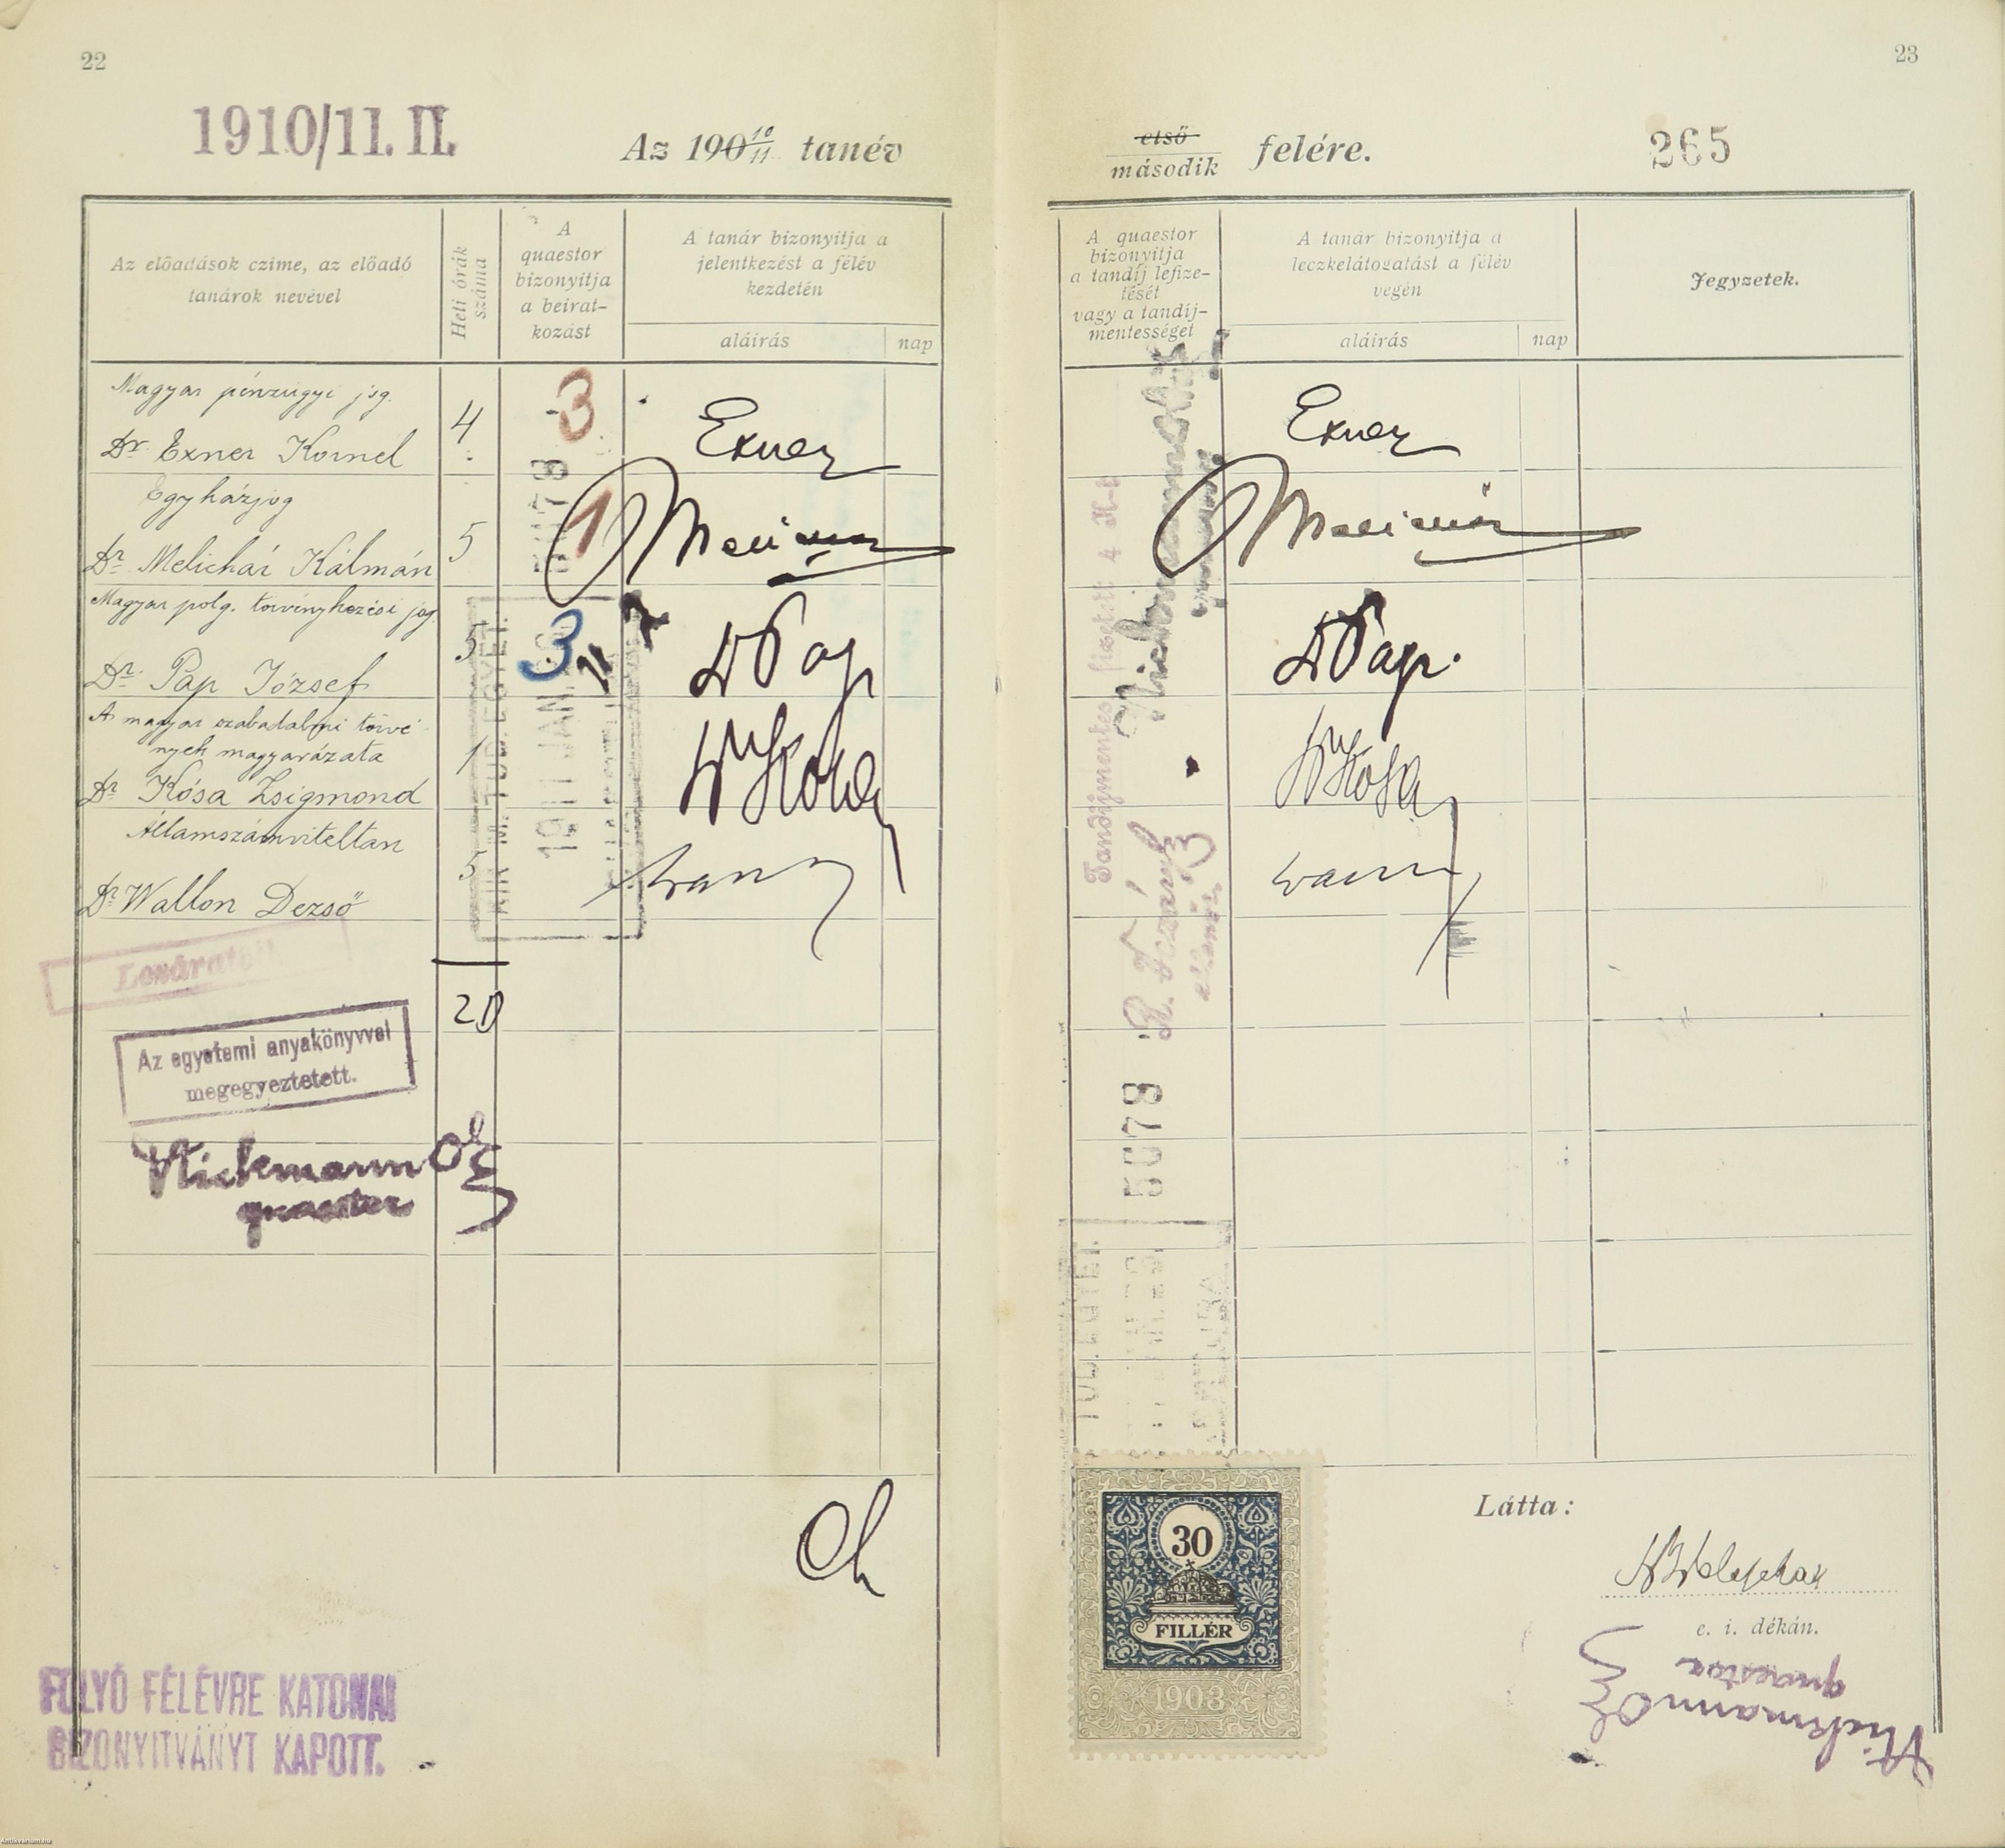 22
1910/11. II.
Az 190 10/11 tanév
Az előadások czime, az előadó
tanárok nevével
Heti órák
száma
A
quaestor
bizonyítja
a beirat-
kozást
A tanár bizonyítja a
jelentkezést a félév
kezdetén
aláírás
nap
Magyar pénzügyi jog.
Dr. Exner Kornél
4
3
Exner
Egyházjog
Dr. Melichár Kálmán
5
1
Magyar polg. törvénykezési jog.
Dr. Pap József
5
3
Dr Pap
A magyar szabadalmi törvé-
nyek magyarázata
Dr. Kósa Zsigmond
1
Dr Kósa
Államszámviteltan
Dr Wallon Dezső
5
1911 JAN.
20
Lezáratott
Az egyetemi anyakönyvvel
megegyeztetett.
quaestor
FOLYÓ FÉLÉVRE KATONAI
BIZONYITVÁNYT KAPOTT.
23
első
második
felére.
265
A quaestor
bizonyítja
a tandíj lefize-
tését
vagy a tandíj-
mentességet
A tanár bizonyítja a
leczkelátogatást a félév
végén
aláírás
nap
Jegyzetek.
Exner
Dr Pap.
Dr Kósa
Tandíjmentes, fizetett 4 K-t
ellenőr
5078
30
FILLÉR
1903
Látta:
e. i. dékán.
quaestor
Antikvarium.hu